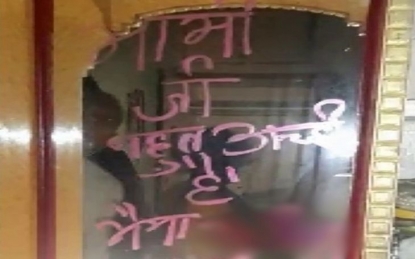 मामी
जी
बहुत अच्छी
है।